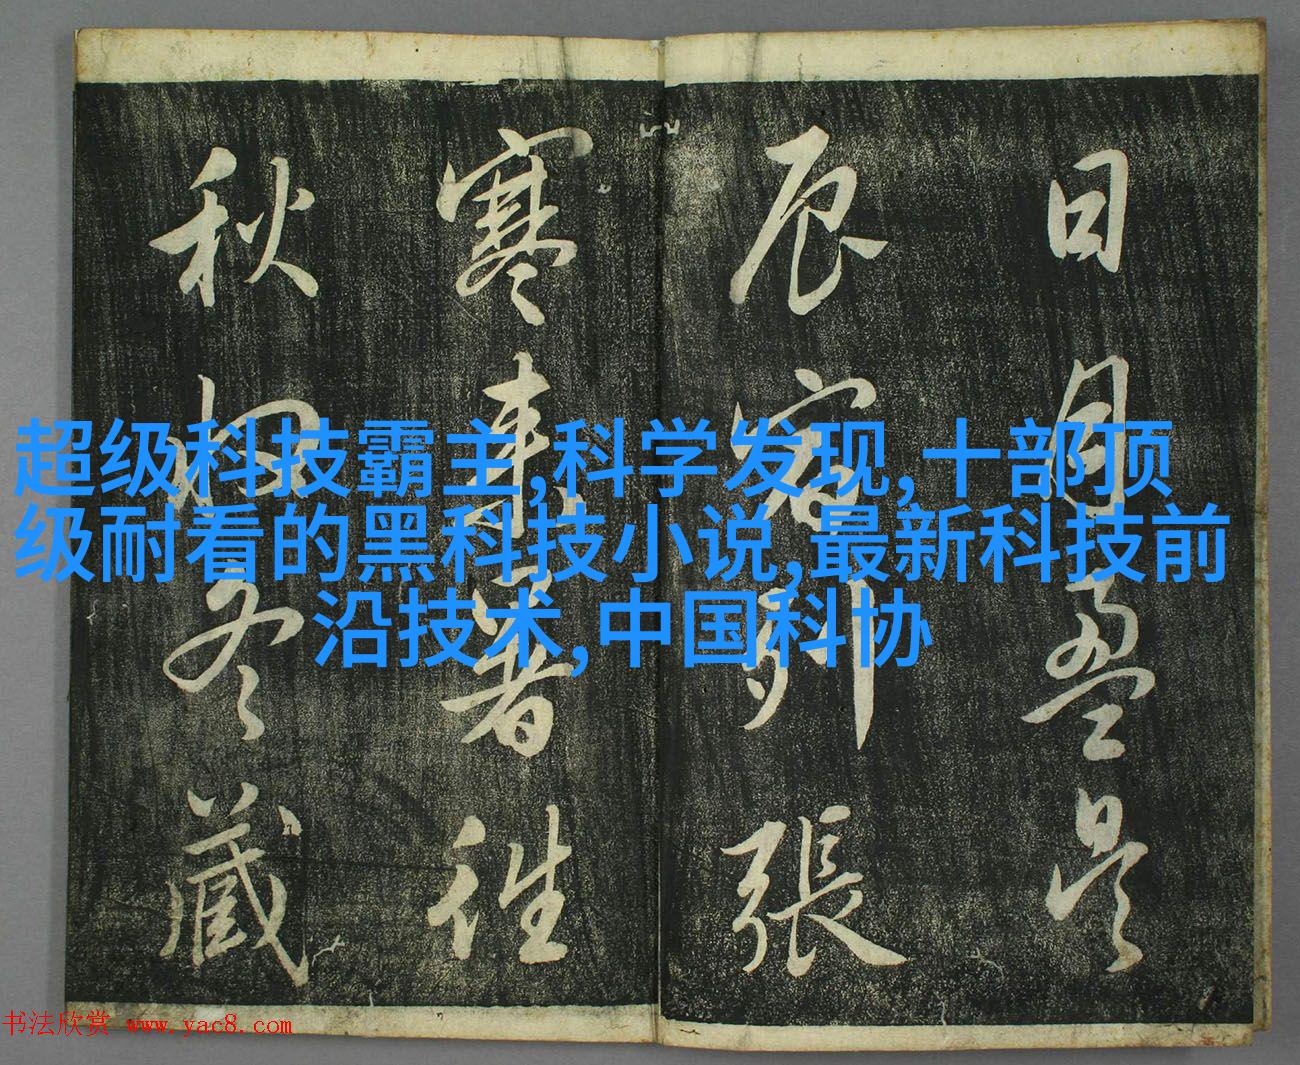 日月盈昃
辰宿列張
寒来暑往
秋收冬藏
超级科技霸主,科学发现,十部顶
级耐看的黑科技小说,最新科技前
沿技术,中国科协
书法欣赏 www.yac8.com